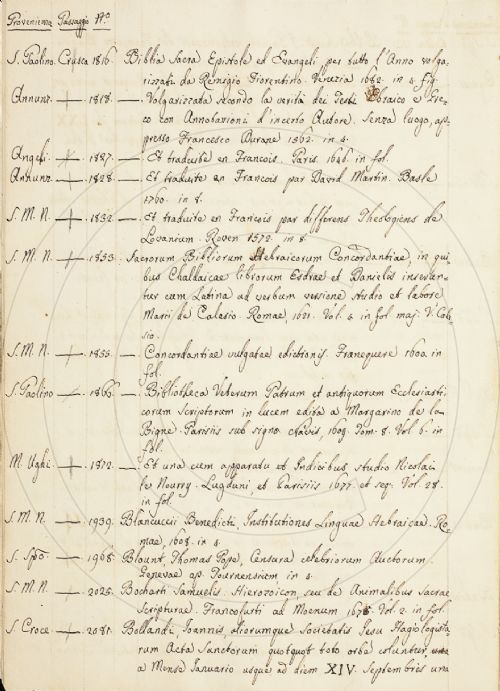 Provenienza Passaggio N.o
S. Paolino. Crusca 1816. Biblia Sacra Epistole ed Evangeli per tutto l'Anno volga-
rizzati da Remigio Fiorentino. Venezia 1682. in 8. fig.
Annunz. — 1818. —. Volgarizzata secondo la verità dei Testi Ebraico e Gre-
co con Annotazioni d'incerto Autore. Senza luogo, ap-
presso Francesco Durone 1562. in 8.
Angeli. — 1827. —. Et traduite en Francois. Paris. in fol.
Annunz. — 1828. — Et traduite en Francois par David Martin. Basle
1760. in 8.
S. M. N. — 1832. — Et traduite en François par differens Theologiens de
Lovanium. Roven 1572. in 8.
S. M. N. — 1853. Sacrorum Bibliorum Hebraicorum Concordantiae, in qui-
bus Chaldaicae librorum Esdrae et Danielis inserun-
tur cum Latina ad verbum versione studio et labore
Marii de Calasio. Romae, 1621. Vol. 4 in fol. maj. V. Cala-
sio.
S. M. N. — 1855. — Concordantiae vulgatae editionis. Franequere 1600. in
fol.
S. Paolino — 1866. —. Bibliotheca Veterum Patrum et antiquorum Ecclesiasti-
corum Scriptorum in lucem edita a Margarino de la
Bigne. Parisiis sub signo clavis, 1609. Tom. 8. Vol. 6. in
fol.
M. Ughi. — 1872. —. Et una cum apparatu et Indicibus, studio Nicolai
le Nourry. Lugduni, et Parisiis 1677. et seq. Vol. 28.
in fol.
S. M. N. — 1939. Blancuccii Benedicti Institutiones Linguae Hebraicae. Ro-
mae, 1608. in 4.
S. Spo — 1968. Blount, Thomas Pope, Censura celebriorum Auctorum.
Genevae ap. Tournensium in 4.
S. M. N. — 2025. Bocharti Samuelis. Hierozoicon seu de Animalibus Sacrae
Scripturae. Francofurti ad Moenum 1675. Vol. 2. in fol.
S. Croce — 2081. Bollandi, Joannis, aliorumque Societatis Jesu Hagiologista-
rum Acta Sanctorum quotquot toto orbe coluntur,
a Mense Januario usque ad diem XIV Septembris una